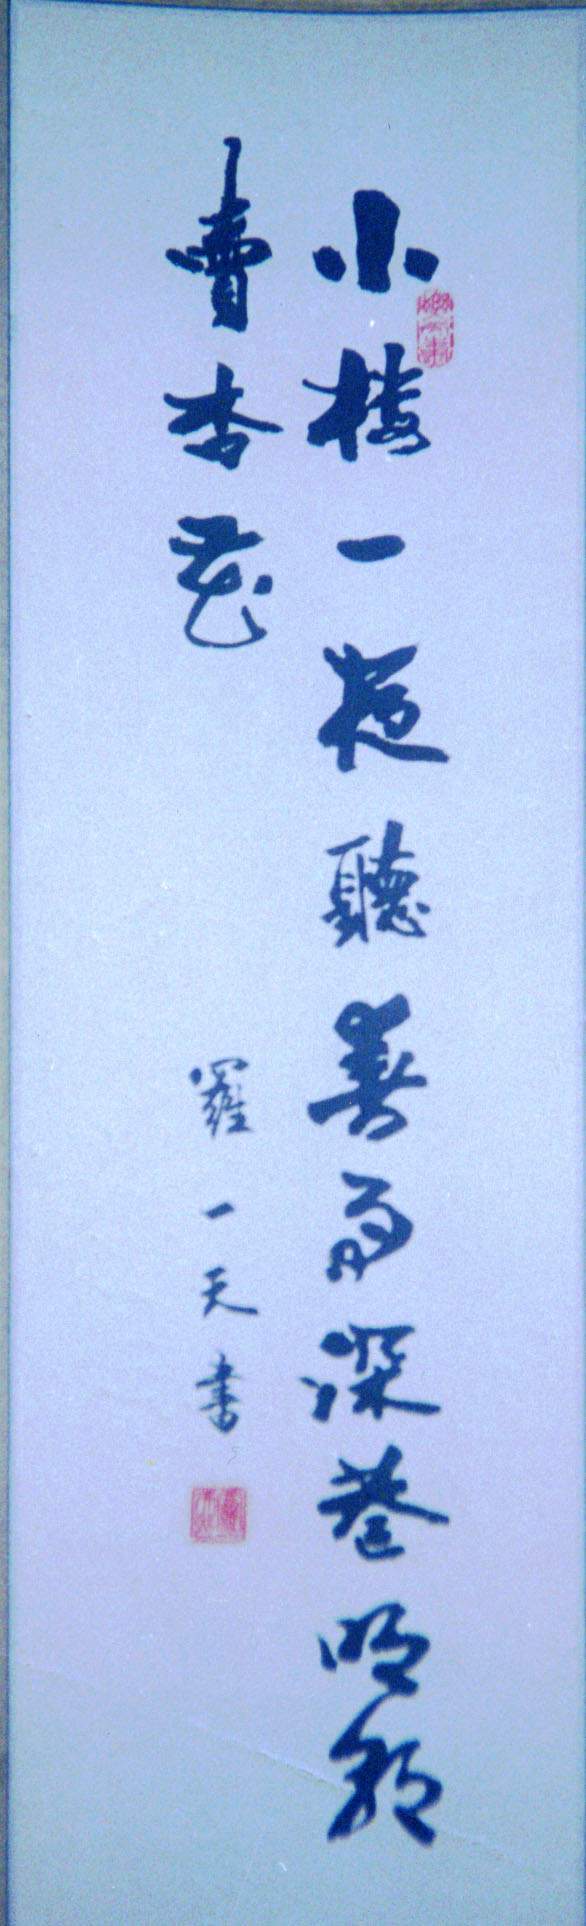 小樓一夜聽春雨深巷明朝
賣杏花
羅一天書